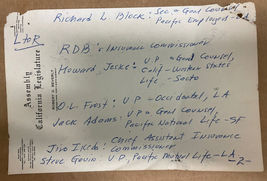 Richard L. Block: Sec & Genl Counsel,
Pacific Employed
L to R
RDB: Insurance Commissioner
Howard Jeske: V.P. - Genl Counsel,
Calif - Western States
Life - Sacto
O.L. Frost: V.P - Occidental, LA
Jack Adams: V.P & Genl Counsel,
Pacific National Life - SF
Jiro Ikeda: Chief Assistant Insurance
Commissioner
Steve Gavin: V.P, Pacific Mutual Life - LA
-2-
Assembly
California Legislature